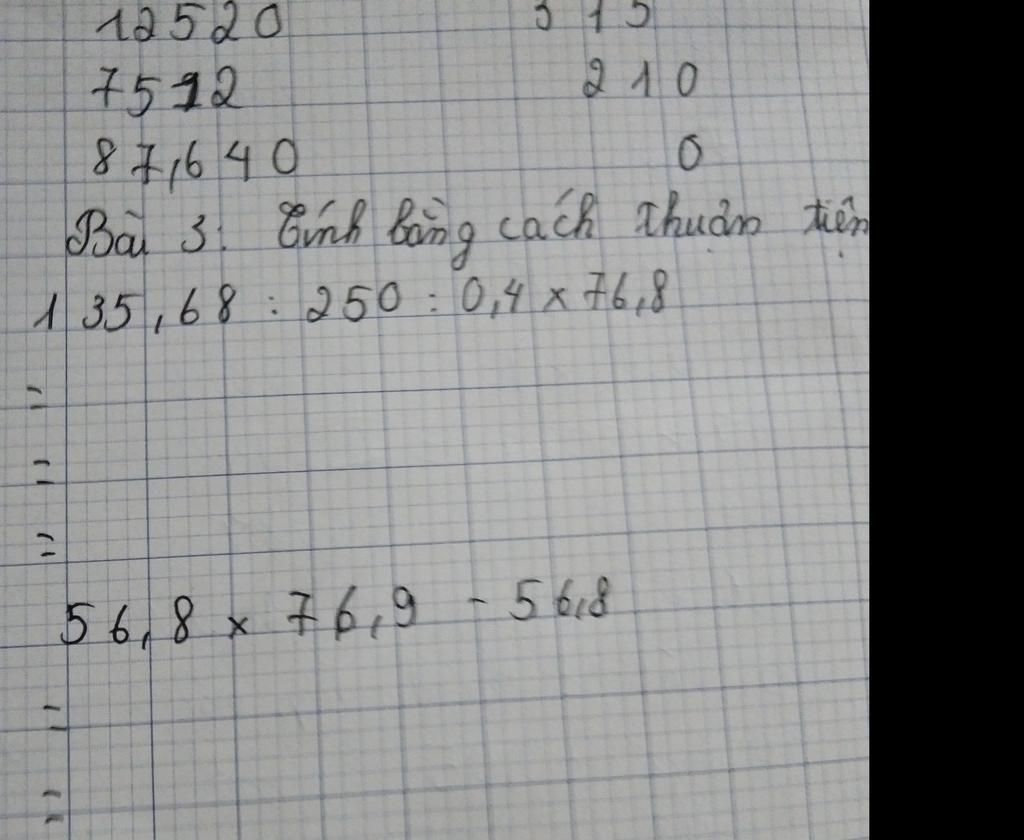 12520 315
7512 210
87,640 0
Bài 3: Tính bằng cách thuận tiện
135,68 : 250 : 0,4 x 76,8
=
=
=
56,8 x 76,9 - 56,8
=
=